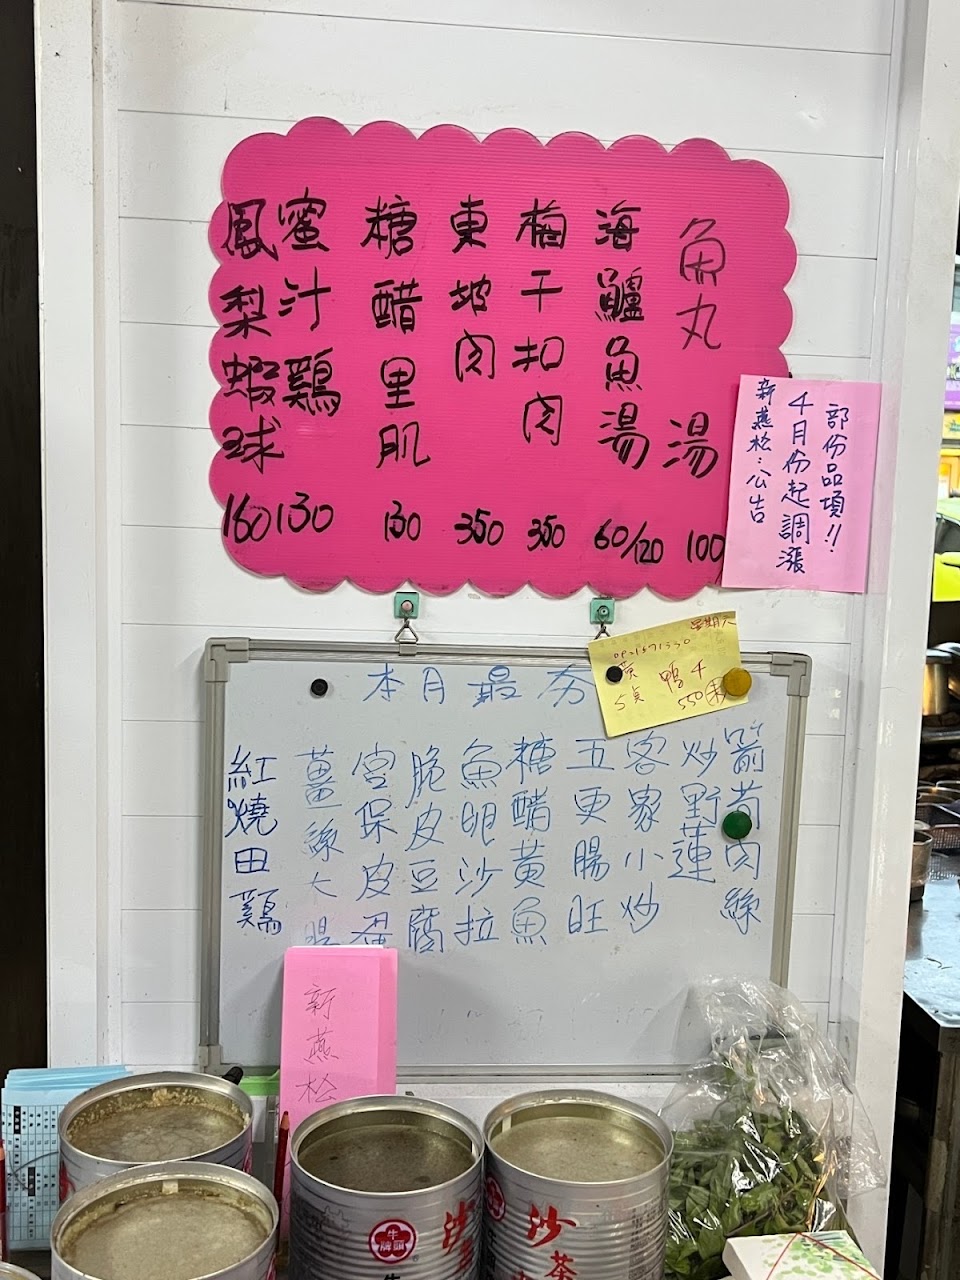 魚丸湯 100
海鱸魚湯 60/120
梅干扣肉 350
東坡肉 350
糖醋里肌 130
蜜汁鶏 130
鳳梨蝦球 160
部份品項!!
4月份起調漲
新燕松:公告
星期六
鴨4
550
5
本月最夯
箭筍肉絲
炒野蓮
客家小炒
五更腸旺
糖醋黃魚
魚卵沙拉
脆皮豆腐
宮保皮蛋
薑絲大腸
紅燒田鶏
新燕松
牛
牌頭
沙
牛
沙茶